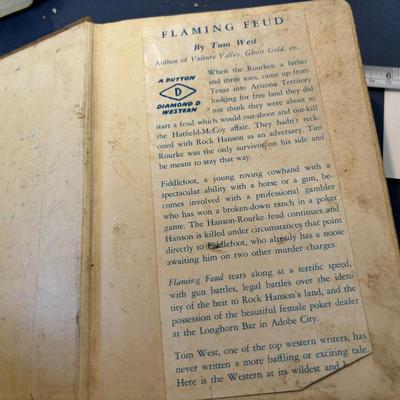 FLAMING FEUD
By Tom West
Author of Vulture Valley, Ghost Gold, etc.
A DUTTON
D
DIAMOND D
WESTERN
When the Rourkes, a father
and three sons, came up from
Texas into Arizona Territory
looking for free land they did
not think they were about to
start a feud which would out-shoot and out-kill
the Hatfield-McCoy affair. They hadn't reck-
oned with Rock Hanson as an adversary. Tim
Rourke was the only survivor on his side and
he meant to stay that way.
Fiddlefoot, a young roving cowhand with a
spectacular ability with a horse or a gun, be-
comes involved with a professional gambler
who has won a broken-down ranch in a poker
game. The Hanson-Rourke feud continues and
Hanson is killed under circumstances that point
directly to Fiddlefoot, who already has a noose
awaiting him on two other murder charges.
Flaming Feud tears along at a terrific speed,
with gun battles, legal battles over the iden-
tity of the heir to Rock Hanson's land, and the
possession of the beautiful female poker dealer
at the Longhorn Bar in Adobe City.
Tom West, one of the top western writers, has
never written a more baffling or exciting tale.
Here is the Western at its wildest and
6